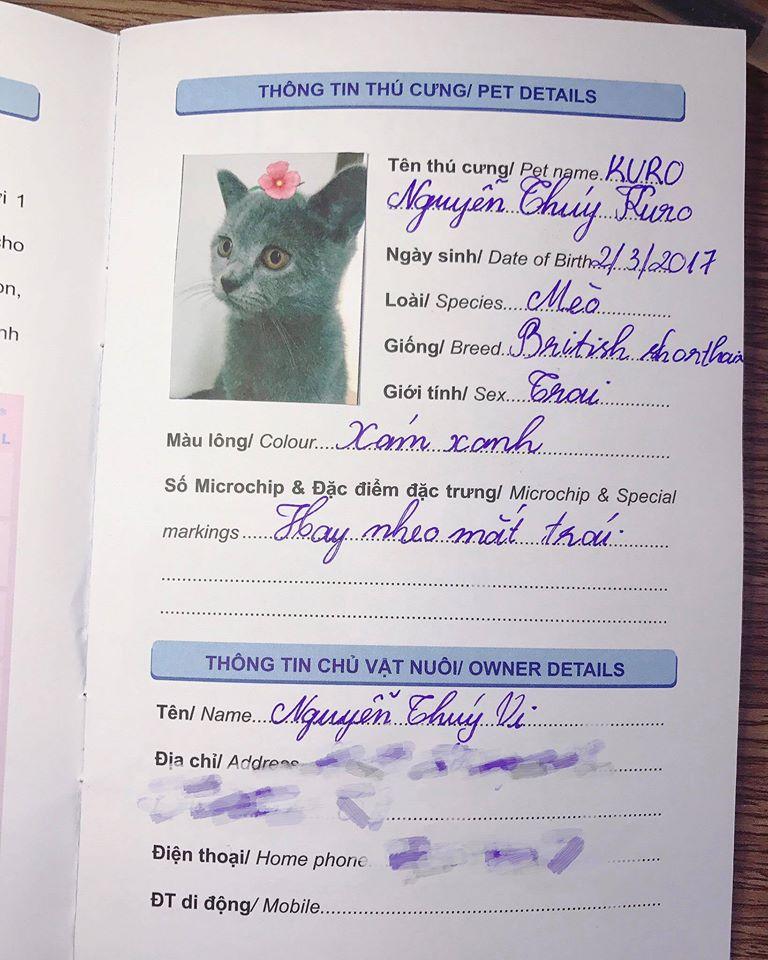 THÔNG TIN THÚ CƯNG/ PET DETAILS
Tên thú cưng/ Pet name..KURO
Nguyễn Thúy Kuro
Ngày sinh/ Date of Birth 2/3/2017
Loài/ Species....Mèo
Giống/ Breed..British shorthair
Giới tính/ Sex....Trai
Màu lông/ Colour....Xám xanh
Số Microchip & Đặc điểm đặc trưng/ Microchip & Special
markings......Hay nheo mắt trái.
THÔNG TIN CHỦ VẬT NUÔI/ OWNER DETAILS
Tên/ Name...Nguyễn Thúy Vi
Địa chỉ/ Address
Điện thoại/ Home phone
ĐT di động/ Mobile
ri 1
cho
on,
nh
L